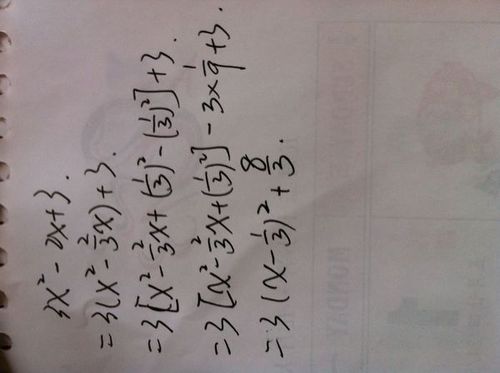 3x² - 2x + 3.
= 3(x² - 2/3 x) + 3.
= 3[x² - 2/3 x + (1/3)² - (1/3)²] + 3.
= 3[x² - 2/3 x + (1/3)²] - 3 × 1/9 + 3.
= 3(x - 1/3)² + 8/3.